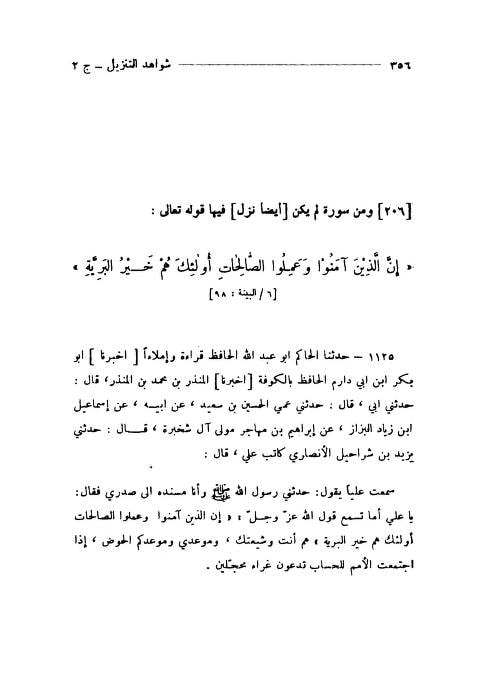 ٣٥٦ شواهد التنزيل – ج ٢
[٢٠٦] ومن سورة لم يكن [أيضاً نزل] فيها قوله تعالى :
« إِنَّ الَّذِيْنَ آمَنُوْا وَعَمِلُوا الصَّالِحَاتِ أُولٰئِكَ هُمْ خَيْرُ البَرِيَّةِ »
[٦ / البينة : ٩٨]
١١٢٥ – حدثنا الحاكم ابو عبد الله الحافظ قراءة وإملاءاً [ اخبرنا ] ابو
بكر ابن ابي دارم الحافظ بالكوفة [اخبرنا] المنذر بن محمد بن المنذر، قال :
حدثني أبي ، قال : حدثني عمي الحسين بن سعيد ، عن ابيه ، عن إسماعيل
ابن زياد البزاز ، عن إبراهيم بن مهاجر مولى آل شخبرة ، قال : حدثني
يزيد بن شراحيل الأنصاري كاتب علي ، قال :
سمعت علياً يقول: حدثني رسول الله ﷺ وأنا مسنده الى صدري فقال:
يا علي أما تسمع قول الله عزّ وجلّ : « إن الذين آمنوا وعملوا الصالحات
أولئك هم خير البرية » هم أنت وشيعتك ، وموعدي وموعدكم الحوض ، إذا
اجتمعت الأمم للحساب تدعون غراء محجّلين .